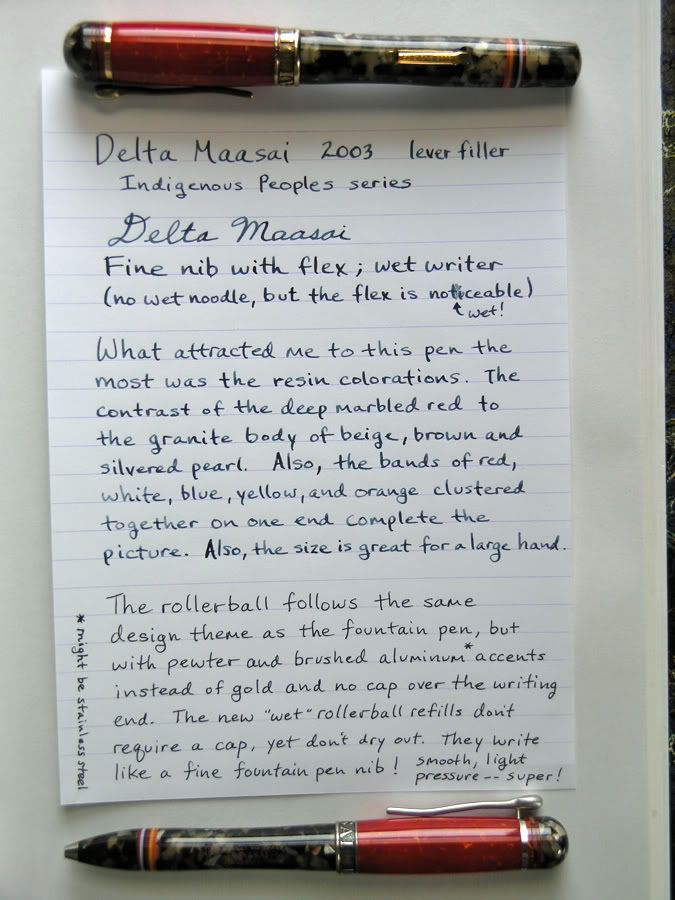 Delta Maasai 2003 lever filler
Indigenous Peoples series
Delta Maasai
Fine nib with flex; wet writer
(no wet noodle, but the flex is noticeable)
wet!
What attracted me to this pen the
most was the resin colorations. The
contrast of the deep marbled red to
the granite body of beige, brown and
silvered pearl. Also, the bands of red,
white, blue, yellow, and orange clustered
together on one end complete the
picture. Also, the size is great for a large hand.
The rollerball follows the same
design theme as the fountain pen, but
with pewter and brushed aluminum* accents
instead of gold and no cap over the writing
end. The new "wet" rollerball refills don't
require a cap, yet don't dry out. They write
like a fine fountain pen nib! smooth, light
pressure -- super!
* might be stainless steel